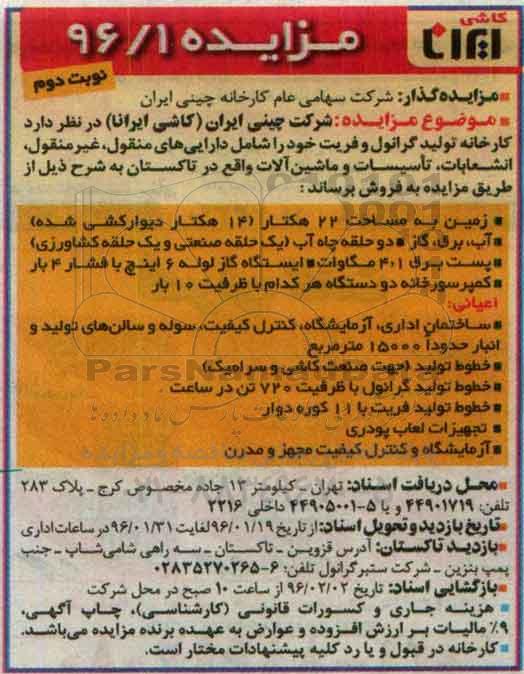 کاشی
ایرانا
مزایده ۹۶/۱
نوبت دوم
■مزایده‌گذار: شرکت سهامی عام کارخانه چینی ایران
■ موضوع مزایده: شرکت چینی ایران (کاشی ایرانا) در نظر دارد
کارخانه تولید گرانول و فریت خود را شامل دارایی‌های منقول، غیرمنقول،
انشعابات، تأسیسات و ماشین‌آلات واقع در تاکستان به شرح ذیل از
طریق مزایده به فروش برساند:
■ زمین به مساحت ۲۲ هکتار (۱۴ هکتار دیوارکشی شده)
■آب، برق، گاز ■ دو حلقه چاه آب (یک حلقه صنعتی و یک حلقه کشاورزی)
■پست برق ۴،۱ مگاوات■ ایستگاه گاز لوله ۶ اینچ با فشار ۴ بار
■کمپرسورخانه دو دستگاه هر کدام با ظرفیت ۱۰ بار
اعیانی:
■ ساختمان اداری، آزمایشگاه، کنترل کیفیت، سوله و سالن‌های تولید و
انبار حدوداً ۱۵۰۰۰ مترمربع
■ خطوط تولید (جهت صنعت کاشی و سرامیک)
■ خطوط تولید گرانول با ظرفیت ۷۲۰ تن در ساعت
■ خطوط تولید فریت با ۱۱ کوره دوار
■ تجهیزات لعاب پودری
■ آزمایشگاه و کنترل کیفیت مجهز و مدرن
■محل دریافت اسناد: تهران - کیلومتر ۱۳ جاده مخصوص کرج - پلاک ۲۸۳
تلفن: ۴۴۹۰۱۷۱۹ و یا ۵-۴۴۹۰۵۰۰۱ داخلی ۲۲۱۶
■تاریخ بازدید و تحویل اسناد: از تاریخ ۹۶/۰۱/۱۹ لغایت ۹۶/۰۱/۳۱ در ساعات اداری
■بازدید تاکستان: آدرس قزوین - تاکستان - سه راهی شامی‌شاپ - جنب
پمپ بنزین - شرکت ستبر گرانول تلفن: ۶-۰۲۸۳۵۲۷۰۲۶۵
■بازگشایی اسناد: تاریخ ۹۶/۰۲/۰۲ از ساعت ۱۰ صبح در محل شرکت
■ هزینه جاری و کسورات قانونی (کارشناسی)، چاپ آگهی،
۹٪ مالیات بر ارزش افزوده و عوارض به عهده برنده مزایده می‌باشد.
■کارخانه در قبول و یا رد کلیه پیشنهادات مختار است.